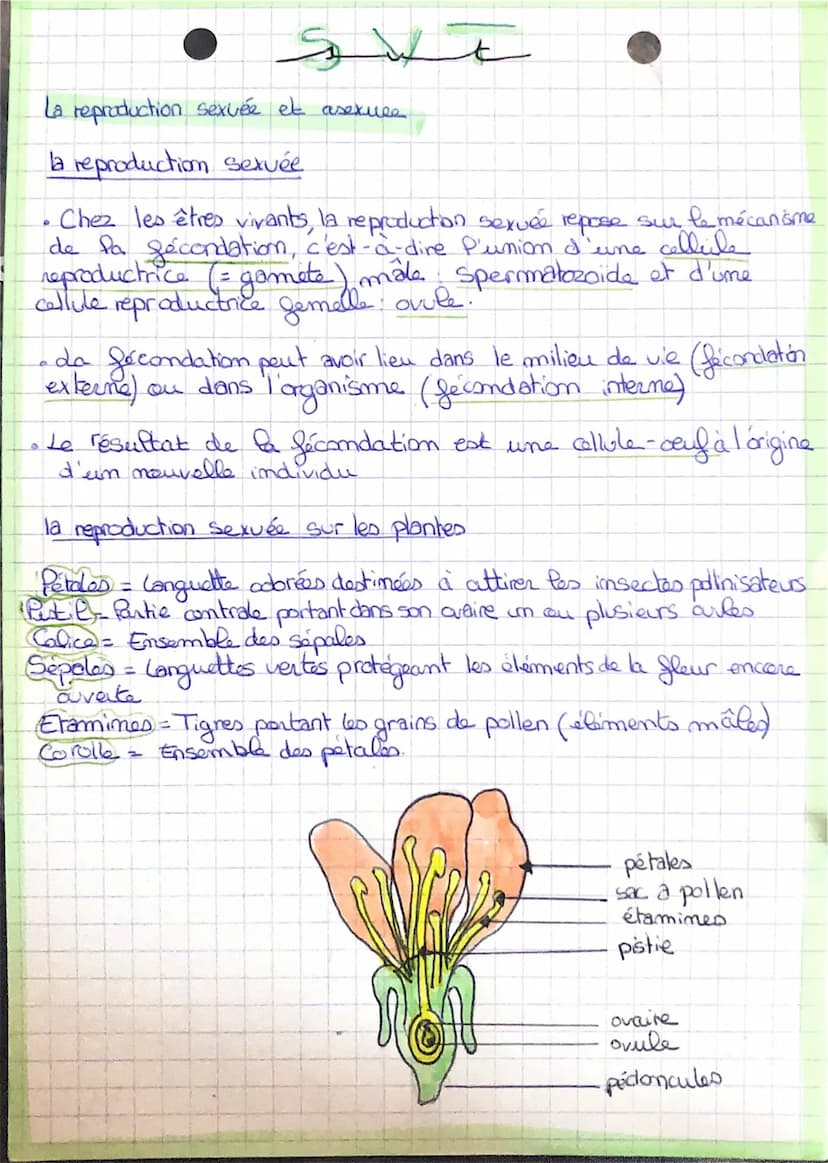 SVT
La reproduction sexuée et asexuée
la reproduction sexuée
• Chez les êtres vivants, la reproduction sexuée repose sur le mécanisme
de la fécondation, c'est-à-dire l'union d'une cellule
reproductrice (= gamète) mâle : spermatozoïde et d'une
cellule reproductrice femelle : ovule.
• La fécondation peut avoir lieu dans le milieu de vie (fécondation
externe) ou dans l'organisme (fécondation interne)
• Le résultat de la fécondation est une cellule-oeuf à l'origine
d'un nouvelle individu
la reproduction sexuée sur les plantes
Pétales = Languette colorées destinées à attirer les insectes pollinisateurs
Pistil = Partie centrale portant dans son ovaire un ou plusieurs ovules
Calice = Ensemble des sépales
Sépales = Languettes vertes protégeant les éléments de la fleur encore
ouverte
Etamines = Tigres portant les grains de pollen (éléments mâles)
Corolle = Ensemble des pétales.
pétales
sac a pollen
étamines
pistie
ovaire
ovule
pédoncules